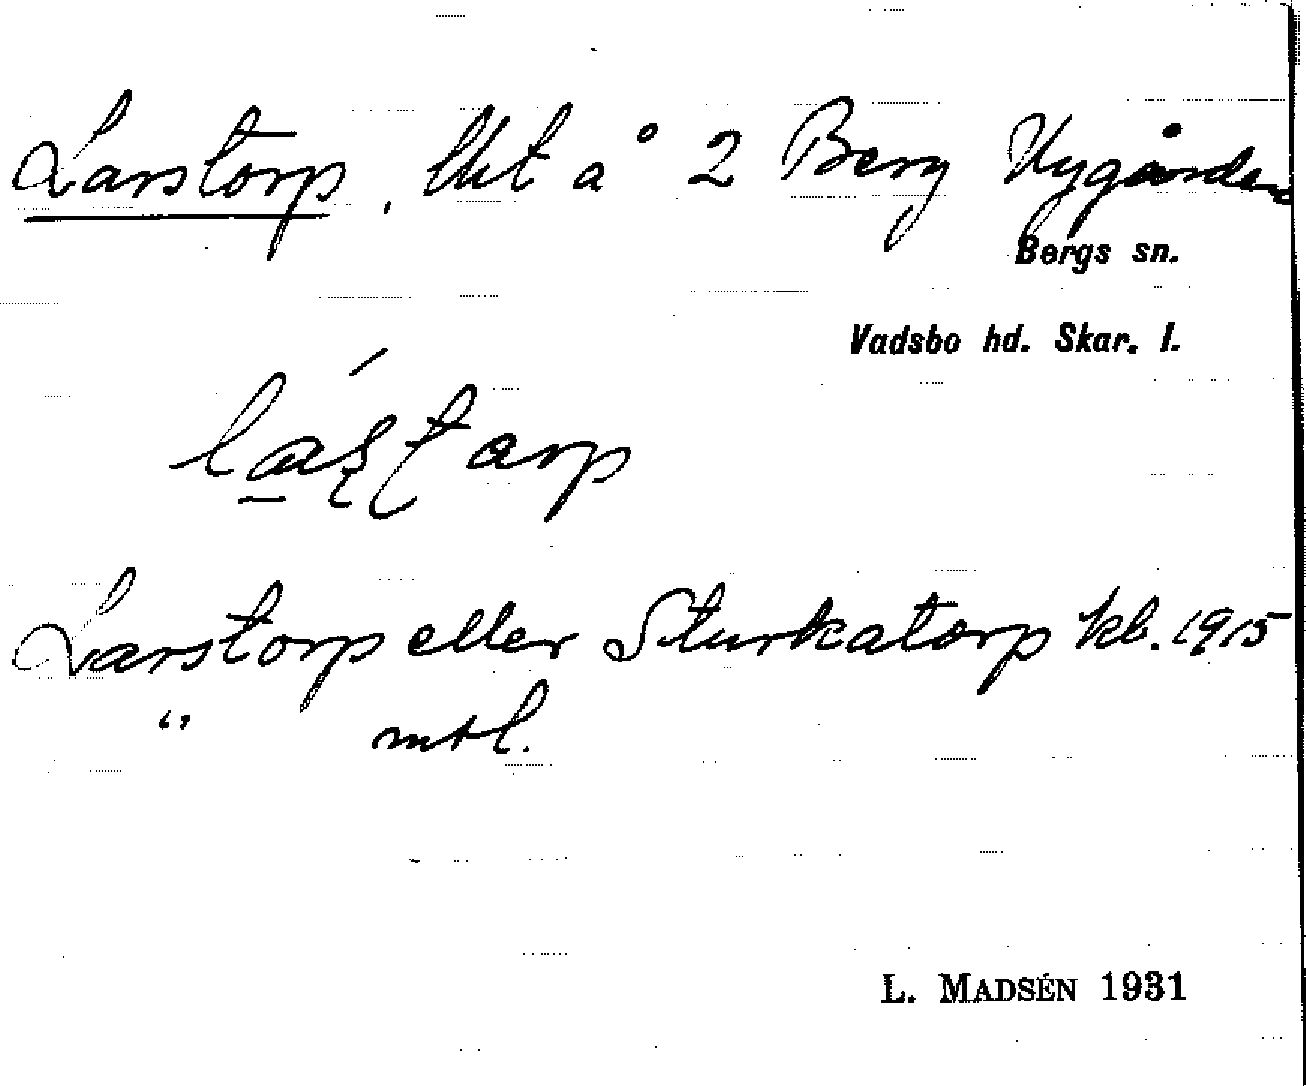 Larstorp, lht å 2 Berg Nygården
Bergs sn.
Vadsbo hd. Skar. l.
Larstorp eller Sturkatorp kb. 1915
" mtl.
L. MADSÉN 1931